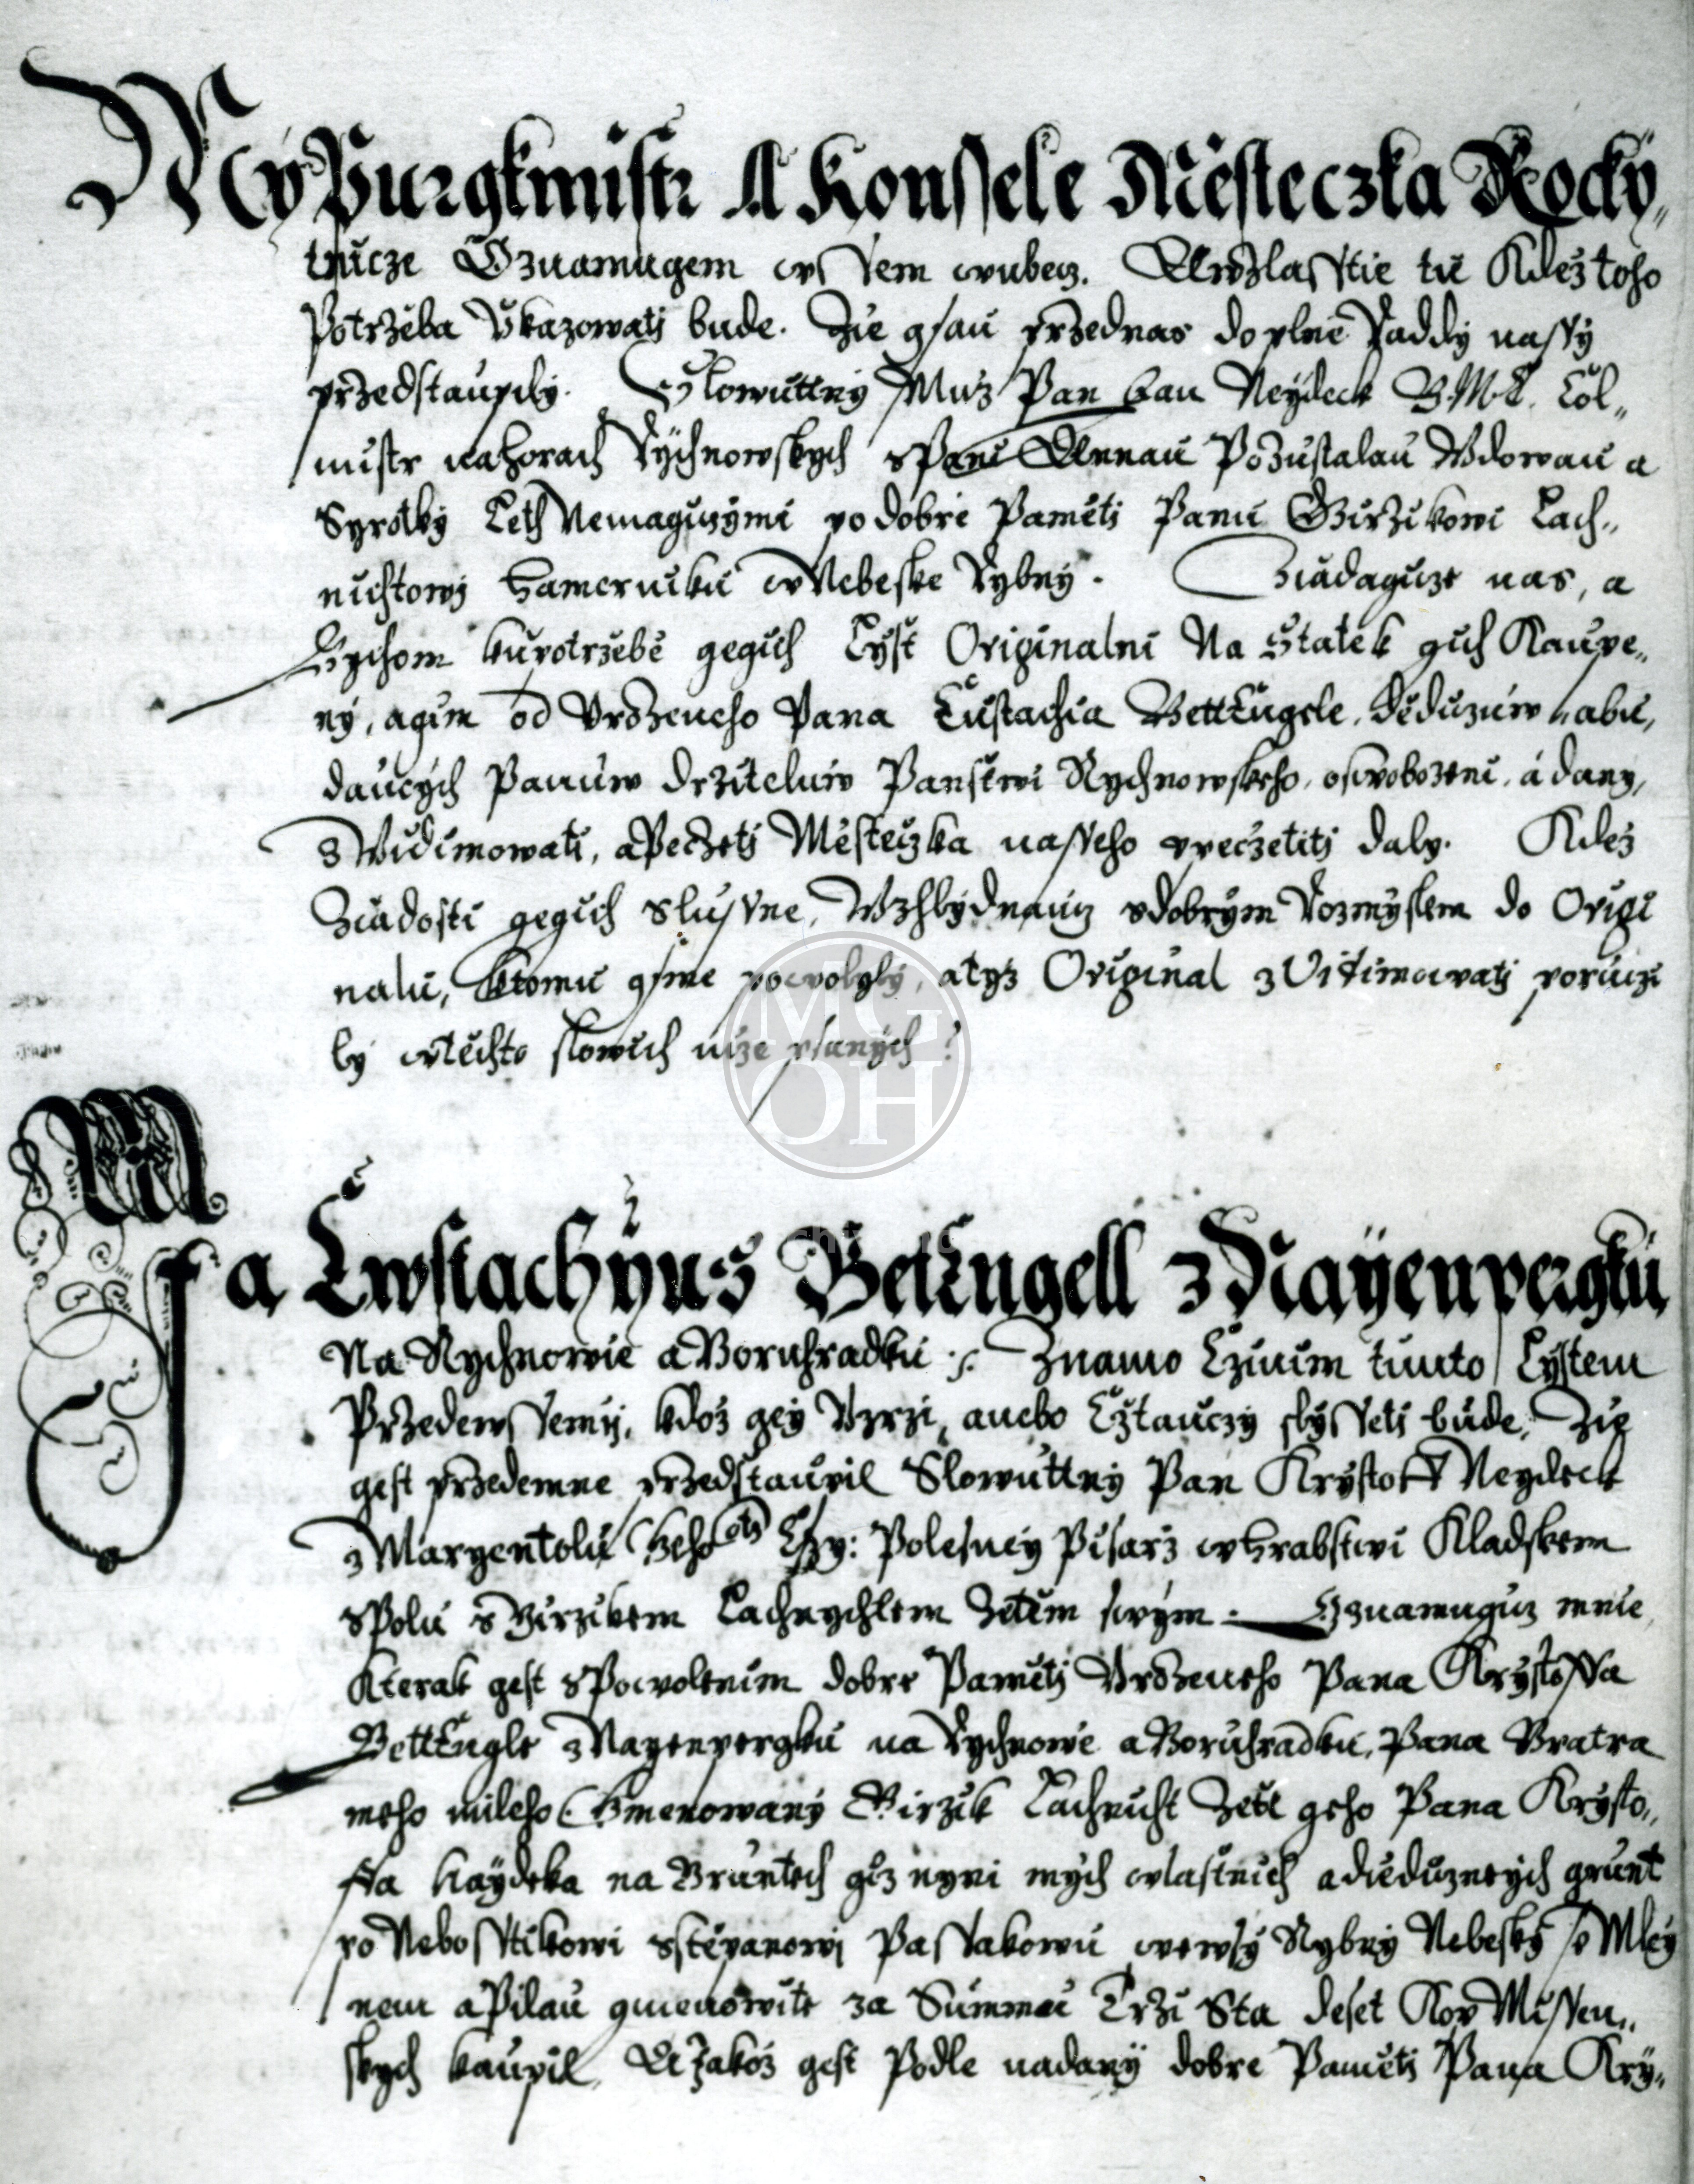 My Purgkmistr A Konssele Městeczka Rocky„
tnicze Oznamugem wssem wubecz. A Wzlasstie tu Kdež toho
Potrzeba Ukazowatj bude. Zie gsau przednas do plne Raddy nassy
przedstaupily. Slowuttny Muž Pan Jan Neydeck G.M.C. Col„
mistr nahorach Rychnowskych s Pani Annau Pozustalau Wdowau a
Syrotky Leth Nemagicymi po dobre Pamětj Panu Girzikowi Lach„
nichtowj Hamerniku w Nebeske Rybny. Ziadagicze nas, a
bychom kupotrzebě gegich Lyst Originalni Na Statek gich Kaupe„
ny, a gim od Urozeneho Pana Eustachia Bettengele, děduzuw nabu,
daucych Panuw držiteluw Panstwi Rychnowskeho, oswobozeni, a dany,
s Widimowati, a Peczetj Městeczka nasseho zpeczetitj daly. Kdež
Ziadosti gegich slussne, Wzhlydnaucz s dobrym Rozmyslem do Origi
nalu, k tomu gsme powolyly, a tyž Original z Vidimowatj poruczi
ly w těchto slowich niže psanych:
Ja Ewstachyus Betengell z Nayenpergku
Na Rychnowie a Boruhradku ./. Znamo Czinim timto Lystem
Przedewssemy, kdož gey Uzrzi, anebo Cztauczy slyssetj bude, Zie
gest przedemne przedstaupil Slowuttny Pan Krystoff Neydeck
z Maryentolu Geho Mti Czy: Polesney Pisarz w Hrabstwi Kladskem
spolu s Girzikem Lachnychtem Zetěm swym. Oznamugicz mnie,
Kterak gest s Powolenim dobre Pamětj Urozeneho Pana Krystoffa
Bettengle z Nayenpergku na Rychnowe a Boruhradku, Pana Bratra
meho mileho (: Gmenowany Girzik Lachnicht Zetě geho Pana Krysto„
ffa Naydeka na Gruntech giž nyni mych wlastnich a diedicznych grunt
po Nebosstikowi Sstěpanowi Passakowu we wsy Rybny Nebesky, s Mley
nem a Pilau gmenowite za Summu Trzi Sta deset Kop Missen„
skych kaupil, A Jakož gest Podle nadany dobre Pamětj Pana Kry„